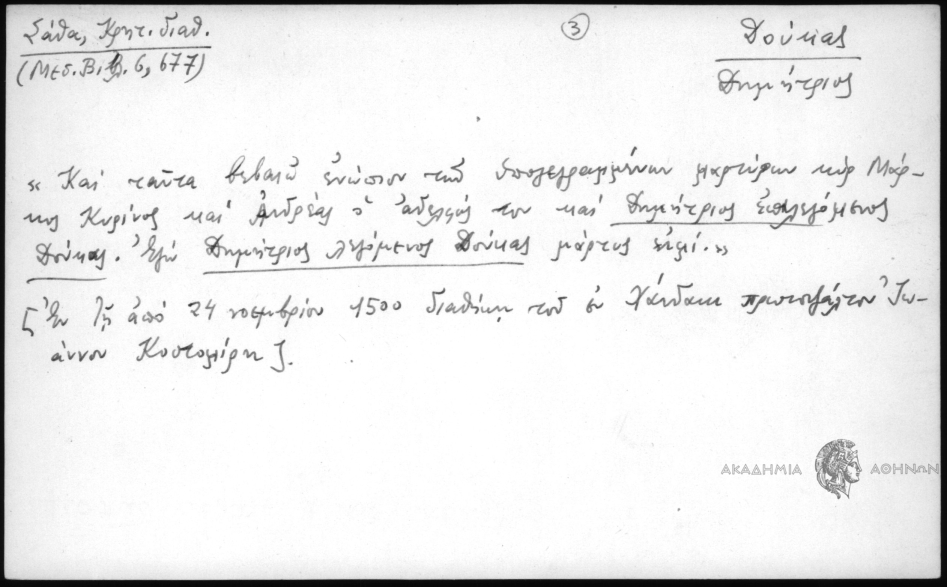 Σάθα, Κρητ. διαθ.
(Μεσ. Βιβ. 6, 677)
3
Δούκας
Δημήτριος
« Καὶ ταῦτα βεβαιῶ ἐνώπιον τῶν ὑπογεγραμμένων μαρτύρων κὺρ Μάρ-
κος Κυρίνος καὶ Ἀνδρέας ὁ ἀδελφός του καὶ Δημήτριος ἐπιλεγόμενος
Δούκας. Ἐγὼ Δημήτριος λεγόμενος Δούκας μάρτυς εἰμί. »
[Ἐν τῇ ἀπό 24 νοεμβρίου 1500 διαθήκῃ τοῦ ἐν Χάνδακι πρωτοψάλτου Ἰω-
άννου Κοτολιέρη].
ΑΚΑΔΗΜΙΑ ΑΘΗΝΩΝ